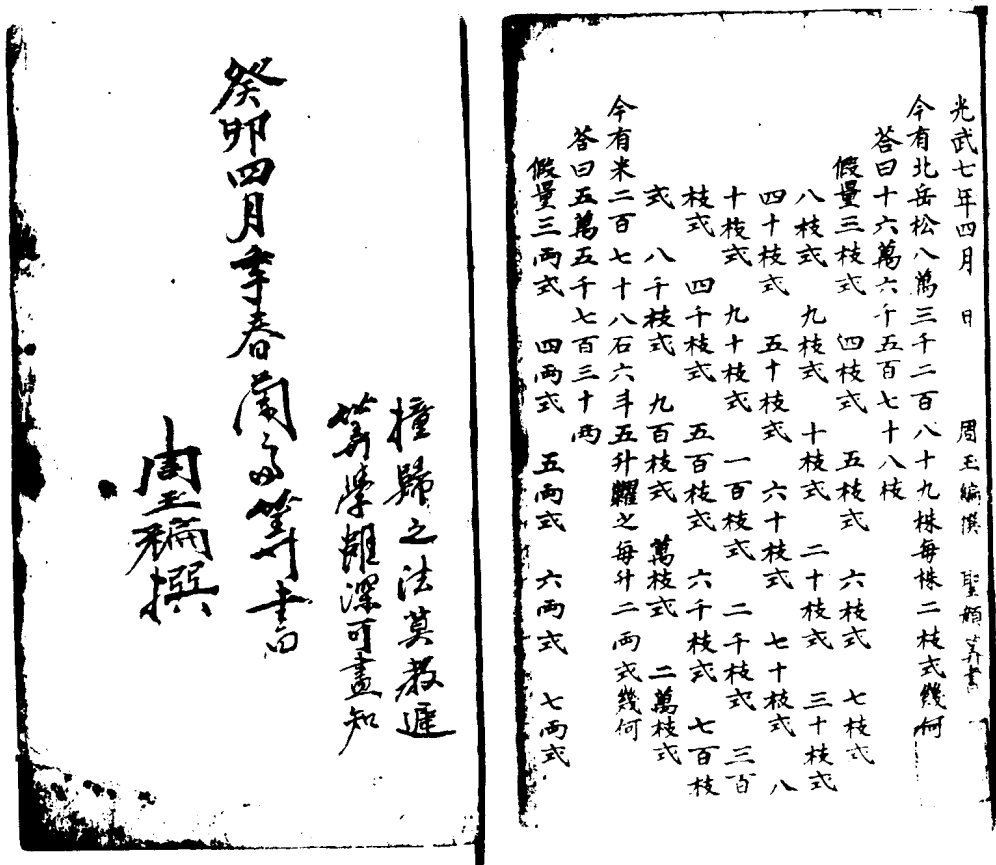 光武七年四月 日 周王編撰 聖顏筭書
今有北岳松八萬三千二百八十九株每株二枝式幾何
答曰十六萬六千五百七十八枝
假量三枝式 四枝式 五枝式 六枝式 七枝式
八枝式 九枝式 十枝式 二十枝式 三十枝式
四十枝式 五十枝式 六十枝式 七十枝式 八
十枝式 九十枝式 一百枝式 二千枝式 三百
枝式 四千枝式 五百枝式 六千枝式 七百枝
式 八千枝式 九百枝式 萬枝式 二萬枝式
今有米二百七十八石六斗五升糶之每升二兩式幾何
答曰五萬五千七百三十兩
假量三兩式 四兩式 五兩式 六兩式 七兩式
撞歸之法莫教遲
筭學雖深可盡知
癸卯四月季春 筭書
周王編撰